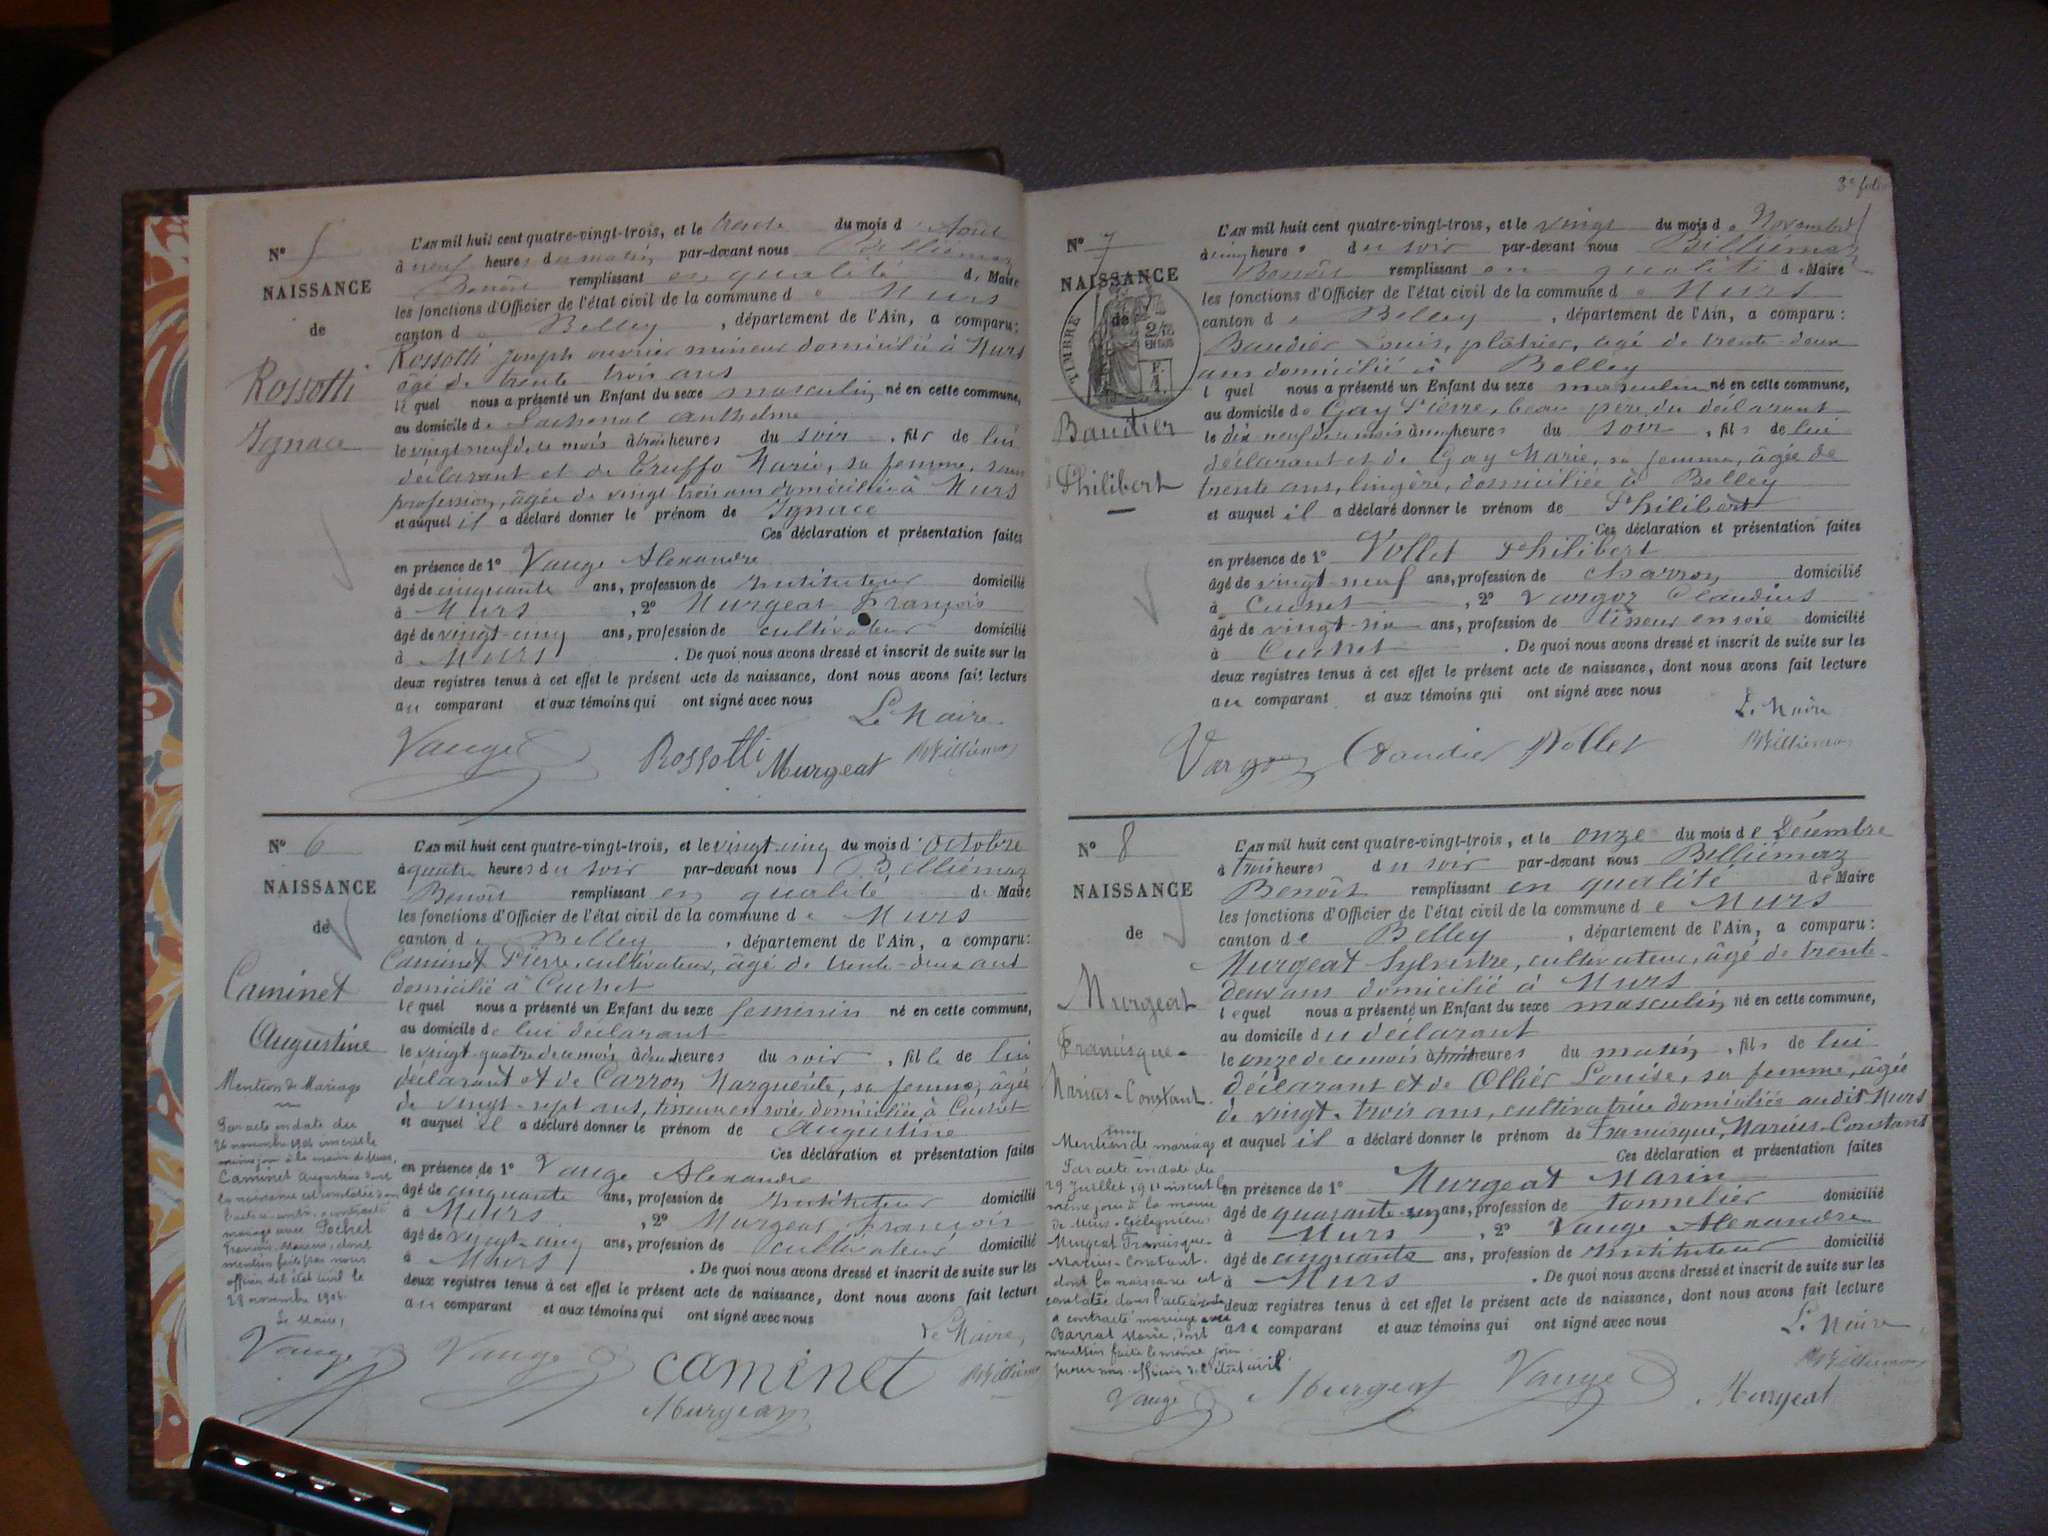 N° 5
NAISSANCE
de
Rossotti
Ignace
L'AN mil huit cent quatre-vingt-trois, et le trente du mois d'Août
à neuf heures du matin par-devant nous Billiémaz
Benoît remplissant en qualité de Maire
les fonctions d'Officier de l'état civil de la commune de Murs
canton de Belley, département de l'Ain, a comparu:
Rossotti Joseph ouvrier mineur domicilié à Murs
âgé de trente trois ans
lequel nous a présenté un Enfant du sexe masculin né en cette commune,
au domicile de Lachenal Anthelme
le vingt neuf de ce mois à trois heures du soir, fils de lui
déclarant et de Truffo Marie, sa femme, sans
profession, âgée de vingt trois ans domiciliée à Murs
et auquel il a déclaré donner le prénom de Ignace
Ces déclaration et présentation faites
en présence de 1° Vauge Alexandre
âgé de cinquante ans, profession de Instituteur domicilié
à Murs, 2° Murgeat François
âgé de vingt-cinq ans, profession de cultivateur domicilié
à Murs. De quoi nous avons dressé et inscrit de suite sur les
deux registres tenus à cet effet le présent acte de naissance, dont nous avons fait lecture
au comparant et aux témoins qui ont signé avec nous
Le Maire
Vauge Rossotti Murgeat BBilliémaz
N° 6
NAISSANCE
de
Caminet
Augustine
Mention de Mariage
Par acte en date du
26 novembre 1906 inscrit le
même jour à la mairie de Murs,
Caminet Augustine dont
la naissance est constatée dans
l'acte ci-contre, a contracté
mariage avec Pochet
François, Marius, dont
mention faite par nous
officier de l'état civil le
28 novembre 1906
Le Maire,
Vauge
L'AN mil huit cent quatre-vingt-trois, et le vingt-cinq du mois d'octobre
à quatre heures du soir par-devant nous Billiémaz
Benoît remplissant en qualité de Maire
les fonctions d'Officier de l'état civil de la commune de Murs
canton de Belley, département de l'Ain, a comparu:
Caminet Pierre, cultivateur, âgé de trente-deux ans
domicilié à Cuchet
lequel nous a présenté un Enfant du sexe féminin né en cette commune,
au domicile de lui déclarant
le vingt quatre de ce mois à deux heures du soir, fille de lui
déclarant et de Carron Marguerite, sa femme, âgée
de vingt-sept ans, tisseur en soie domiciliée à Cuchet
et auquel il a déclaré donner le prénom de Augustine
Ces déclaration et présentation faites
en présence de 1° Vauge Alexandre
âgé de cinquante ans, profession de Instituteur domicilié
à Murs, 2° Murgeat François
âgé de vingt-cinq ans, profession de cultivateur domicilié
à Murs. De quoi nous avons dressé et inscrit de suite sur les
deux registres tenus à cet effet le présent acte de naissance, dont nous avons fait lecture
au comparant et aux témoins qui ont signé avec nous
Le Maire,
Vauge caminet BBilliémaz
Murgeat
3e folio
N° 7
NAISSANCE
de
TIMBRE
2/10 EN SUS
F. 1
Baudier
Philibert
L'AN mil huit cent quatre-vingt-trois, et le vingt du mois de Novembre
à cinq heures du soir par-devant nous Billiémaz
Benoît remplissant en qualité de Maire
les fonctions d'Officier de l'état civil de la commune de Murs
canton de Belley, département de l'Ain, a comparu:
Baudier Louis, plâtrier, âgé de trente-deux
ans domicilié à Belley
lquel nous a présenté un Enfant du sexe masculin né en cette commune,
au domicile de Gay Pierre, beau père du déclarant
le dix neuf de ce mois à heures du soir, fils de lui
déclarant et de Gay Marie, sa femme, âgée de
trente ans, lingère, domiciliée à Belley
et auquel il a déclaré donner le prénom de Philibert
Ces déclaration et présentation faites
en présence de 1° Vollet Philibert
âgé de vingt-neuf ans, profession de charron domicilié
à Cuchet, 2° Vargoz Claudius
âgé de vingt-six ans, profession de tisseur en soie domicilié
à Cuchet. De quoi nous avons dressé et inscrit de suite sur les
deux registres tenus à cet effet le présent acte de naissance, dont nous avons fait lecture
au comparant et aux témoins qui ont signé avec nous
Le Maire
Vargoz Baudier Vollet BBilliémaz
N° 8
NAISSANCE
de
Murgeat
Francisque-
Marius-Constant
Mention de mariage
Par acte en date du
29 Juillet 1911 inscrit le
même jour à la mairie
de Murs-Gélignieux
Murgeat Francisque-
Marius-Constant.
dont la naissance est
constatée dans l'acte ci-contre
a contracté mariage avec
Barrat Marie, dont
mention faite le même jour
par nous officier de l'état civil.
Vauge
L'AN mil huit cent quatre-vingt-trois, et le onze du mois de Décembre
à trois heures du soir par-devant nous Billiémaz
Benoît remplissant en qualité de Maire
les fonctions d'Officier de l'état civil de la commune de Murs
canton de Belley, département de l'Ain, a comparu:
Murgeat Sylvestre, cultivateur, âgé de trente-
deux ans domicilié à Murs
lequel nous a présenté un Enfant du sexe masculin né en cette commune,
au domicile du déclarant
le onze de ce mois à heures du matin, fils de lui
déclarant et de Ollier Louise, sa femme, âgée
de vingt-trois ans, cultivatrice domiciliée audit Murs
et auquel il a déclaré donner le prénom de Francisque, Marius-Constant
Ces déclaration et présentation faites
en présence de 1° Murgeat Marin
âgé de quarante-cinq ans, profession de tonnelier domicilié
à Murs, 2° Vauge Alexandre
âgé de cinquante ans, profession de Instituteur domicilié
à Murs. De quoi nous avons dressé et inscrit de suite sur les
deux registres tenus à cet effet le présent acte de naissance, dont nous avons fait lecture
au comparant et aux témoins qui ont signé avec nous
Le Maire
Murgeat Vauge BBilliémaz
Murgeat